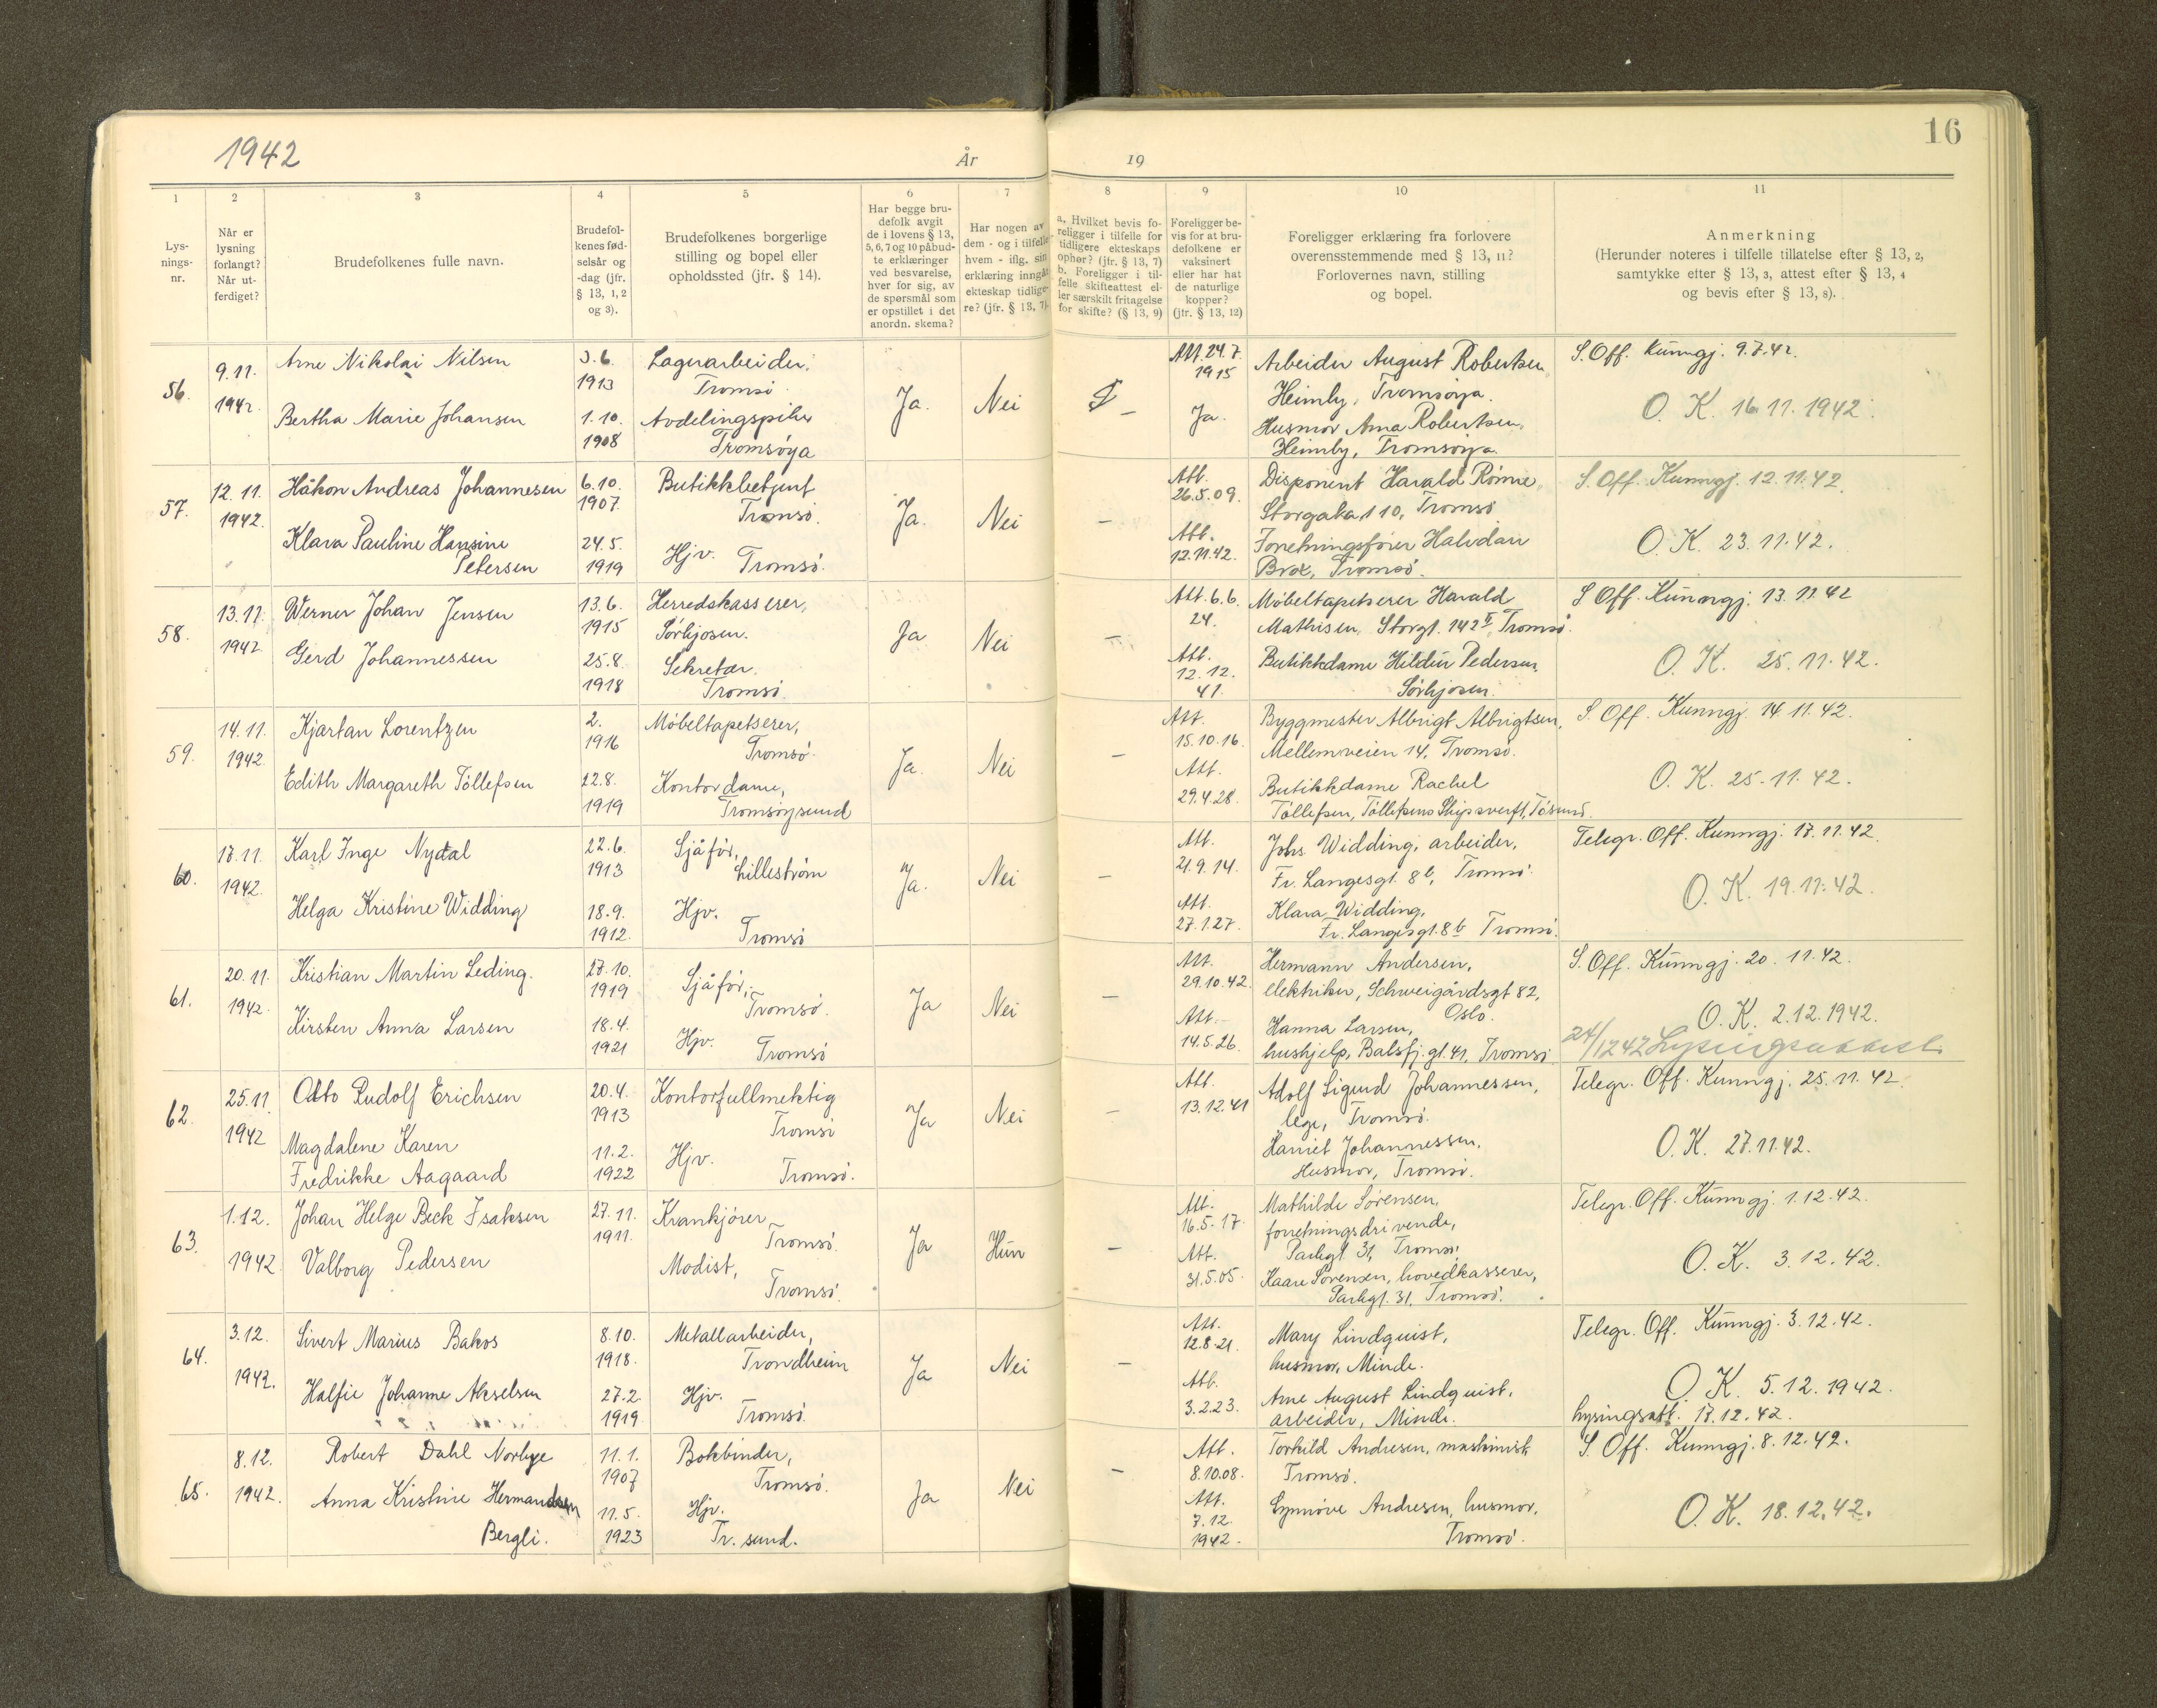 1942
År
19
16
1
2
3
4
5
6
7
8
9
10
11
Lys-
nings-
nr.
Når er
lysning
forlangt?
Når ut-
ferdiget?
Brudefolkenes fulle navn.
Brudefol-
kenes fød-
selsår og
-dag (jfr.
§ 13, 1, 2
og 3).
Brudefolkenes borgerlige
stilling og bopel eller
opholdssted (jfr. § 14).
Har begge bru-
defolk avgit
de i lovens § 13,
5, 6, 7 og 10 påbud-
te erklæringer
ved besvarelse,
hver for sig, av
de spørsmål som
er opstillet i det
anordn. skema?
Har nogen av
dem - og i tilfelle
hvem - iflg. sin
erklæring inngåt
ekteskap tidlige-
re? (jfr. § 13, 7)
a. Hvilket bevis fo-
religger i tilfelle for
tidligere ekteskaps
ophør? (jfr. § 13, 7)
b. Foreligger i til-
felle skifteattest el-
ler særskilt fritagelse
for skifte? (§ 13, 9)
Foreligger be-
vis for at bru-
defolkene er
vaksinert
eller har hat
de naturlige
kopper?
(jfr. § 13, 12)
Foreligger erklæring fra forlovere
overensstemmende med § 13, 11?
Forlovernes navn, stilling
og bopel.
Anmerkning
(Herunder noteres i tilfelle tillatelse efter § 13, 2,
samtykke efter § 13, 3, attest efter § 13, 4
og bevis efter § 13, 8).
56.
9.11.
1942.
Arne Nikolai Nilsen
Bertha Marie Johansen
3.6.
1913
1.10.
1908
Lagerarbeider.
Tromsø
Avdelingspike
Tromsøya
Ja.
Nei
–
Att. 24.7.
1915
Ja.
Arbeider August Robertsen,
Heimly, Tromsøya.
Husmor Anna Robertsen,
Heimly, Tromsøya.
S. Off. Kunngj. 9.7.42.
O. K. 16 11. 1942.
57.
12.11.
1942.
Håkon Andreas Johannesen
Klara Pauline Hansine
Petersen
6.10.
1907.
24.5.
1919
Butikkbetjent
Tromsø.
Hjv. Tromsø.
Ja.
Nei
–
Att.
26.5.09.
Att.
12.11.42.
Disponent Harald Rønne,
Storgata 110, Tromsø
Forretningsfører Halvdan
Brox, Tromsø.
S. Off. Kunngj. 12.11.42.
O. K. 23.11.42.
58.
13.11.
1942
Werner Johan Jensen
Gerd Johannessen
13.6.
1915
25.8.
1918
Herredskasserer,
Sørkjosen.
Sekretær.
Tromsø.
Ja
Nei
–
Att. 6.6.
24.
Att.
12.12.
41.
Møbeltapetserer Harald
Mathisen, Storgt. 142 II, Tromsø.
Butikkdame Hildur Pedersen,
Sørkjosen.
S Off. Kunngj. 13.11.42
O. K. 25.11.42.
59.
14.11.
1942.
Kjartan Lorentzen
Edith Margareth Tøllefsen
2.
1916
12.8.
1919
Møbeltapetserer,
Tromsø.
Kontordame,
Tromsøysund
Ja.
Nei
–
Att.
15.10.16.
Att.
29.4.28.
Byggmester Albrigt Albrigtsen,
Mellemveien 14, Tromsø.
Butikkdame Rachel
Tøllefsen, Tøllefsens Skipsverft, Tøsund.
S. Off. Kunngj. 14.11.42.
O. K. 25.11.42.
60.
17.11.
1942.
Karl Inge Nydal
Helga Kristine Widding
22.6.
1913
18.9.
1912.
Sjåfør,
Lillestrøm
Hjv.
Tromsø
Ja.
Nei
–
Att.
21.9.14.
Att.
27.1.27.
Johs Widding, arbeider,
Fr. Langesgt. 8b, Tromsø.
Klara Widding,
Fr. Langesgt. 8b Tromsø.
Telegr. Off. Kunngj. 17.11.42.
O. K. 19.11.42.
61.
20.11.
1942.
Kristian Martin Leding.
Kirsten Anna Larsen
27.10.
1919
18.4.
1921
Sjåfør,
Tromsø.
Hjv.
Tromsø
Ja
Nei
–
Att.
29.10.42.
Att.
14.5.26.
Hermann Andersen,
elektriker, Schweigårdsgt 82,
Oslo.
Hanna Larsen,
hushjelp, Balsfj.gt. 41, Tromsø
S. Off. Kunngj. 20.11.42.
O. K. 2.12.1942.
24/1242 Lysingsattest
62.
25.11.
1942
Otto Rudolf Erichsen
Magdalene Karen
Fredrikke Aagaard
20.4.
1913
11.2.
1922
Kontorfullmektig
Tromsø
Hjv.
Tromsø.
Ja
Nei
–
Att.
13.12.41
Adolf Sigurd Johannessen,
lege, Tromsø.
Harriet Johannessen,
Husmor, Tromsø.
Telegr. Off. Kunngj. 25.11.42.
O. K. 27.11.42.
63.
1.12.
1942
Johan Helge Beck Isaksen
Valborg Pedersen
27.11.
1911.
Krankjører
Tromsø.
Modist,
Tromsø.
Ja
Hun
–
Att.
16.5.17.
Att.
31.5.05.
Mathilde Sørensen,
forretningsdrivende,
Parkgt. 31, Tromsø,
Kaare Sørensen, hovedkasserer,
Parkgt. 31, Tromsø.
Telegr. Off. Kunngj. 1.12.42.
O. K. 3.12.42.
64.
3.12.
1942.
Sivert Marius Bakos
Halfie Johanne Akselsen
8.10.
1918.
27.2.
1919
Metallarbeider,
Trondheim
Hjv.
Tromsø
Ja
Nei
–
Att.
12.8.21.
Att.
3.2.23.
Mary Lindquist,
husmor, Minde.
Arne August Lindquist,
arbeider, Minde.
Telegr. Off. Kunngj. 3.12.42.
O. K. 5.12.1942.
Lysingsatt. 17.12.42.
65.
8.12.
1942.
Robert Dahl Norbye
Anna Kristine Hermandsen
Bergli.
11.1.
1907
11.5.
1923
Bokbinder,
Tromsø.
Hjv.
Tr. sund.
Ja
Nei
–
Att.
8.10.08.
Att.
7.12.
1942.
Torkild Andresen, maskinist
Tromsø.
Synnøve Andresen, husmor,
Tromsø.
S. Off. Kunngj. 8.12.42.
O. K. 18.12.42.